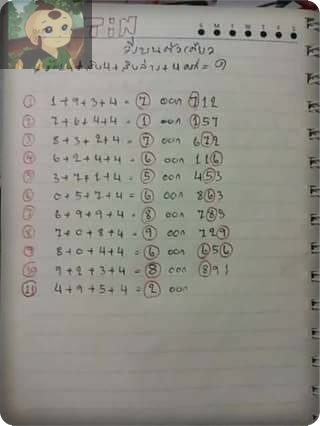 TiN
S M T W T F S
วิ่งบนตัวเดียว
① 1+9+3+4 = 7 ออก 712
② 7+6+4+4 = 1 ออก 157
③ 8+3+2+4 = 7 ออก 672
④ 6+2+4+4 = 6 ออก 116
⑤ 3+7+1+4 = 5 ออก 453
⑥ 0+5+7+4 = 6 ออก 863
⑦ 6+9+9+4 = 8 ออก 785
⑧ 7+0+8+4 = 9 ออก 729
⑨ 8+0+4+4 = 6 ออก 656
⑩ 9+2+3+4 = 8 ออก 891
⑪ 4+9+5+4 = 2 ออก